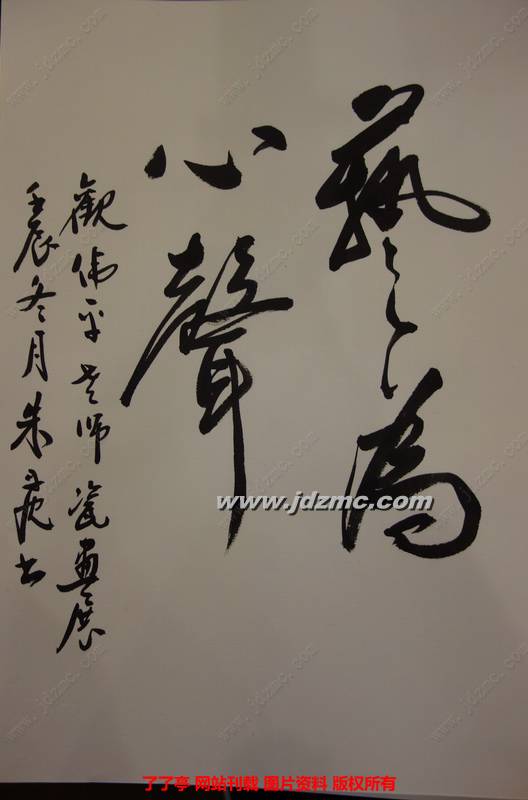 藝為
心聲
觀伟平老师瓷畫展
壬辰冬月朱书
www.jdzmc.com
了了亭 网站刊载 图片资料 版权所有